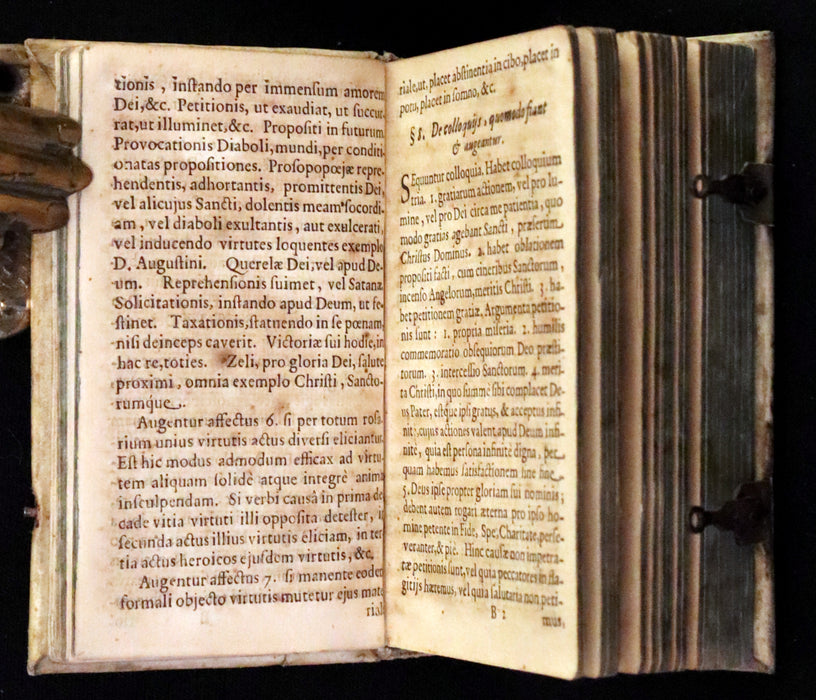 tionis, instando per immensum amorem
Dei,&c. Petitionis, ut exaudiat, ut succur
rat,ut illuminet,&c. Propositi in futurum
Provocationis Diaboli,mundi,per conditi
onatas propositiones. Prosopopœjæ repre-
hendentis, adhortantis, promittentis Dei,
vel alicujus Sancti, dolentis meam socordi-
am, vel diaboli exultantis, aut exulcerati,
vel inducendo virtutes loquentes exemplo
D. Augustini. Querelæ Dei,vel apud De-
um. Reprehensionis suimet, vel Satanæ
Solicitationis, instando apud Deum, ut fe-
stinet. Taxationis,statuendo in se pœnam,
nisi deinceps caverit. Victoriæ sui hodie,in
hac re,toties. Zeli, pro gloria Dei, salute
proximi, omnia exemplo Christi, Sancto-
rumque.
Augentur affectus 6. si per totum rosa-
rium unius virtutis actus diversi eliciantur.
Est hic modus admodum efficax ad virtu-
tem aliquam solidè atque integrè animæ
insculpendam. Si verbi causâ in prima de
cade vitia virtuti illi opposita detester, i
secunda actus illius virtutis eliciam, in ter
tia actus heroicos ejusdem virtutis, &c.
Augentur affectus 7. si manente eodem
formali objecto virtutis mutetur ejus mate
riale
riale,ut, placet abstinentia in cibo, placet in
potu, placet in somno, &c.
§ 5. De colloquijs, quomodo fiant
& augeantur.
SEquuntur colloquia. Habet colloquium
tria. 1. gratiarum actionem, vel pro lu-
mine, vel pro Dei circa me patientia, quo
modo gratias agebant Sancti, præsertim
Christus Dominus. 2. habet oblationem
propositi facti, cum cineribus Sanctorum,
incenso Angelorum,meritis Christi. 3. ha-
bet petitionem gratiæ. Argumenta petitio-
nis sunt: 1. propria miseria. 2. humilis
commemoratio obsequiorum Deo præsti-
torum. 3. intercessio Sanctorum. 4. meri-
ta Christi,in quo summè sibi complacet De-
us Pater, estque ipsi gratus, & acceptus infi-
nitè,cujus actiones valent apud Deum infi-
nitè, quia est persona infinitè digna, per
quam habemus satisfactionem sine fine.
5. Deus ipse propter gloriam sui nominis;
debent autem rogari æterna pro ipso ho-
mine petente in Fide, Spe, Charitate,perse-
veranter,& piè. Hinc causæ non impetra-
tæ petitionis sunt,vel quia peccatores in fla-
gitijs hæremus, vel quia salutaria non peti-
B 2
mus,